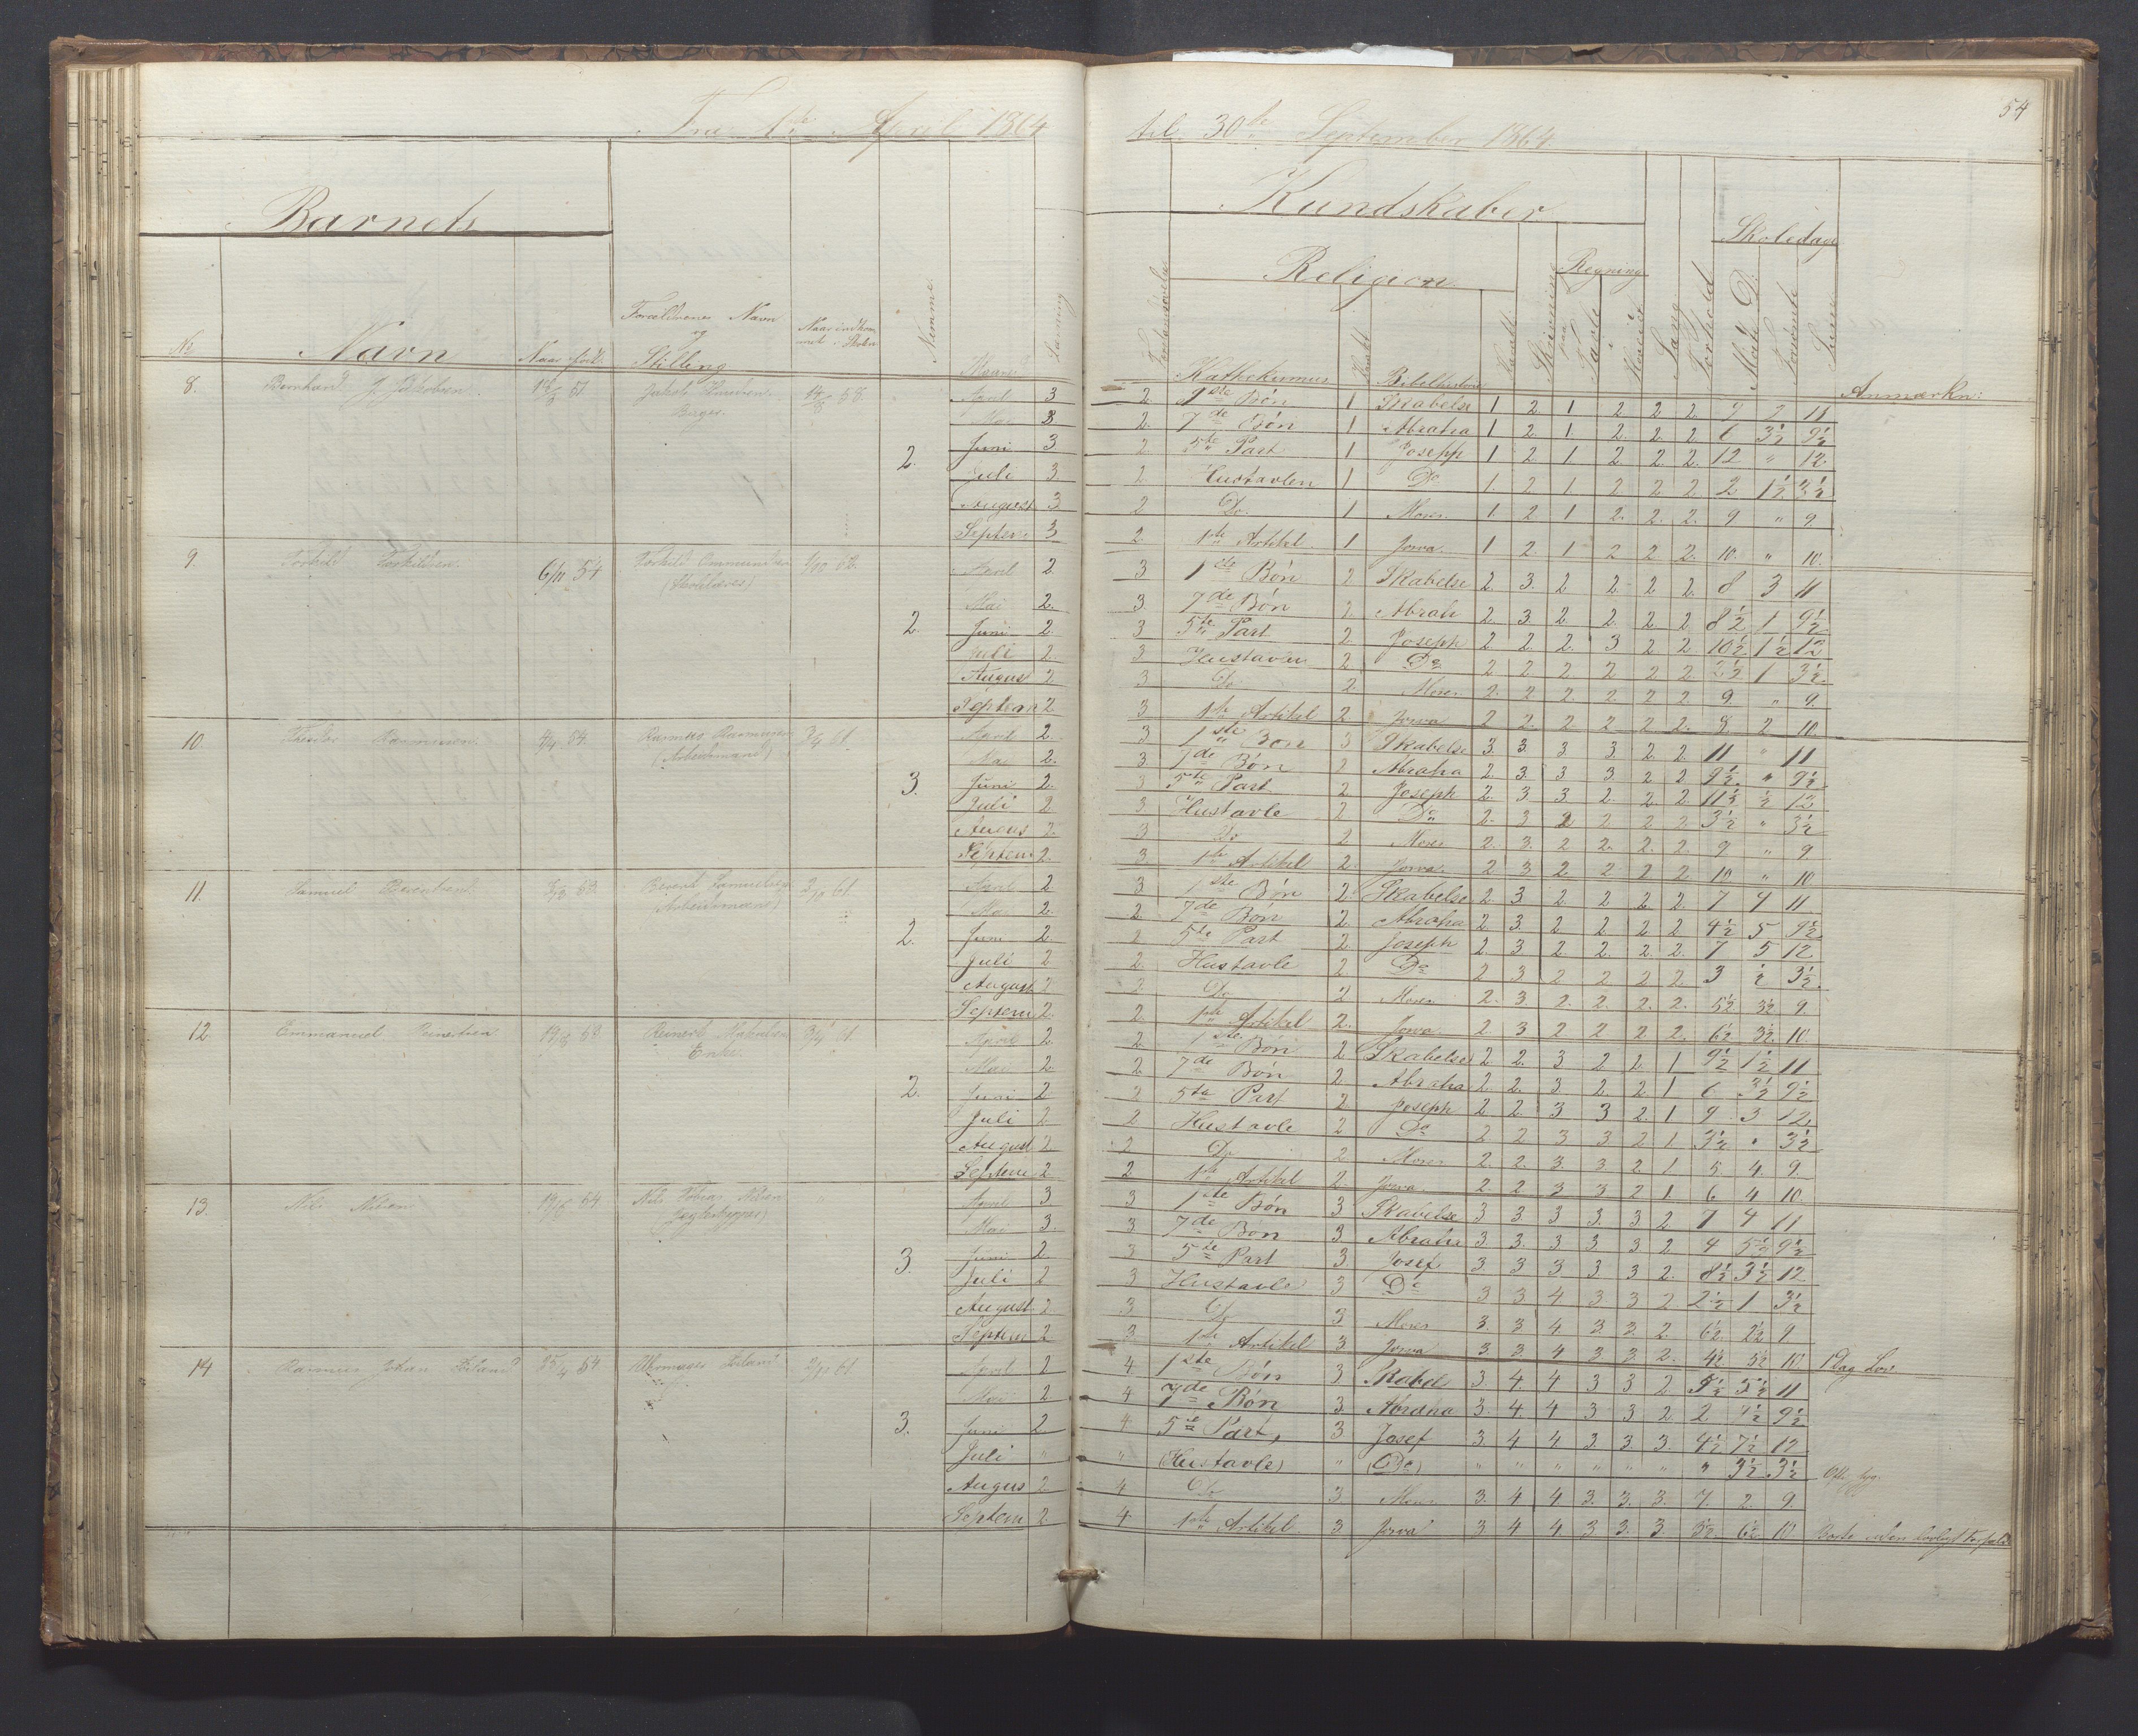 Fra 1ste April 1864 til 30te September 1864.
54
Barnets
Kundskaber
Skoledage
Religion
Regning
No Navn Naar født Forældrenes Navn og Stilling Naar indkommet i Skolen Nemme Maaned Læsning
Kathekismus Karakt Bibelhistorie Karakt Skrivning Tavle Hovedet Sang Forhold Mødte D. Forsømte Summa Anmærkn:
8. Bernhard J. Jakobsen 51 58. 2. April 3 2. 1ste Bøn 1 Skabelse 1 2. 1 2 2 2. 9 2 11
Mai 3 2. 7de Bøn 1 Abraha 1 2. 1 2. 2. 2. 6 3½ 9½
Juni 3 2. 5te Part 1 Joseph 1 2. 1 2. 2. 2. 12 " 12
Juli 3 2. Hustavlen 1 Do 1. 2 1 2 2 2. 2 1½ 3½
August 3 2 Do. 1 Moses 1. 2. 1 2. 2. 2. 9 " 9
Septem. 3 2. 1te Artikel 1 Josva 1 2. 1 2 2 2. 10. " 10.
9. Torkild Torkildsen 6/11 54 Torkild Ommundsen 62. 2. April 2. 3 1ste Bøn 2 Skabelse 2. 3. 2 2 2 2. 8 3 11
Mai 2. 3. 7de Bøn 2. Abrah 2. 3. 2. 2. 2 2 8½ 1 9½
Juni 2. 3 5te Part 2. Joseph 2 2. 2. 3 2 2 10½ 1½ 12
Juli 2. 3. Hustavlen 2 Do 2. 2. 2. 2 2 2. 2½ 1 3½
August 2 3. Do 2. Moses 2. 2 2. 2 2 2. 9 " 9.
Septem 2 3 1te Artikel 2 Josva 2 2. 2 2 2 2. 8 2 10.
10. Rasmussen 4/4 54. Rasmus Rasmussen (Arbeidsmand) 3/4 61. 3. April 2. 3 1ste Bøn 3 Skabelse 3. 3. 3. 3 2 2 11 " 11
Mai 2. 3. 7de Bøn 2 Abraha 2. 3. 3 3. 2 2 9½ " 9½
Juni 2. 3 5te Part 2. Joseph 2. 3 3. 2. 2. 2. 11½ ½ 12
Juli 2 3. Hustavle 2 Do 2. 3 2 2 2 2 3½ " 3½
Augus 2. 3 Do 2 Moses 2. 3. 2 2. 2. 2 9 " 9.
Septem. 2. 3. 1te Artikel 2. Josva 2 3 2. 2 2 2 10 " 10
11. Samuel Berentsen 53 Berent Samuelsen (Arbeidsmand) 61. 2. April 2 3 1ste Bøn 2. Skabelse 2. 3 2 2 2 2. 7 4 11
Mai 2. 2. 7de Bøn 2. Abraha 2 3. 2 2. 2 2 4½ 5 9½
Juni 2 2 5te Part 2. Joseph 2. 3 2 2. 2. 2. 7 5 12
Juli 2 2. Hustavle 2 Do 2 3 2 2 2 2. 3 ½ 3½
August 2 2 Do 2 Moses 2. 3. 2. 2. 2. 2. 5½ 3½ 9.
Septem 2. 2. 1te Artikel 2. Josva 2. 3 2 2 2 2. 6½ 3½ 10.
12. Emmanuel Reinertsen 53 Reinert Enke 61. 2. April 2. 2. 1ste Bøn 2 Skabelse 2 2. 3 2 2. 1 9½ 1½ 11
Mai 2. 2 7de Bøn 2. Abraha 2. 2. 3. 2. 2 1 6 3½ 9½
Juni 2 2 5te Part 2. Joseph 2 2. 3 3 2. 1 9 3 12.
Juli 2 2 Hustavle 2 Do 2 2 3 3. 2 1. 3½ " 3½
August 2. 2 Do 2. Moses 2. 2. 3. 3 2. 1. 5. 4. 9.
Septem 2 2 1te Artikel 2. Josva. 2. 2 3 3 2 1. 6 4 10.
13. Nils Nilsen 54 Nils Tobias Nilsen 3. April 3 3 1ste Bøn 3 Skabelse 3 3 3 3. 3 2. 7 4 11
Mai 3. 3. 7de Bøn 3 Abraha 3 3. 3 3. 3. 2 4 5½ 9½
Juni 2. 3 5te Part 3. Josef 3 3 3 3 3 2. 8½ 3½ 12
Juli 2 3 Hustavle 3 Do 3 3 4 3 3 2 2½ 1 3½
August 2. 3 Do 3 Moses 3. 3 4. 3. 3. 2. 6½ 2½ 9
Septem 2 3. 1te Artikel 3. Josva 3. 3. 4 3 3 2. 4½ 5½ 10 1 Dag Lov.
14. Rasmus Johan 54 Uhrmager 61 3. April 2 4 1ste Bøn 3 Skabel 3. 4. 4 3 3 2 5½ 5½ 11
Mai 2. 4 7de Bøn 3. Abraha 3. 4. 4 3 3 2 2 7½ 9½
Juni 2. 4 5te Part, 3 Josef 3. 4 4 3. 3. 3. 4½ 7½ 12
Juli " " (Hustavle) " (Do) " " " " " " " 3½ 3½
Augus 2. 4 Do 3 Moses 3. 4 4 3. 3. 3. 7. 2. 9.
Septem 2 4 1te Artikel. 3. Josva 3. 4 4 3 3. 3. 3½ 6½ 10 Borte uden lovligt Forfald